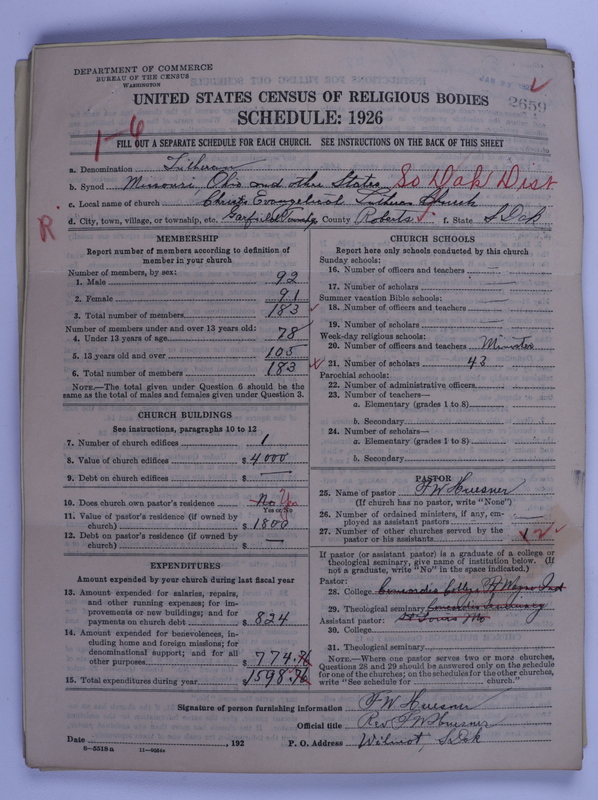 DEPARTMENT OF COMMERCE
BUREAU OF THE CENSUS
WASHINGTON
UNITED STATES CENSUS OF RELIGIOUS BODIES
2659
SCHEDULE: 1926
1-6
FILL OUT A SEPARATE SCHEDULE FOR EACH CHURCH. SEE INSTRUCTIONS ON THE BACK OF THIS SHEET
a. Denomination Lutheran
b. Synod Missouri, Ohio and other States So Dak Dist
c. Local name of church Christ Evangelical Lutheran Church
R.
d. City, town, village, or township, etc. Garfield Township County Roberts f. State S Dak
MEMBERSHIP
Report number of members according to definition of
member in your church
Number of members, by sex:
1. Male 92
2. Female 91
3. Total number of members 183
Number of members under and over 13 years old:
4. Under 13 years of age 78
5. 13 years old and over 105
6. Total number of members 183
NOTE.—The total given under Question 6 should be
same as the total of males and females given under Question 3.
CHURCH BUILDINGS
See instructions, paragraphs 10 to 12
7. Number of church edifices 1
8. Value of church edifices $ 4000
9. Debt on church edifices $ —
10. Does church own pastor's residence No Yes
Yes or No
11. Value of pastor's residence (if owned by
church) $ 1800
12. Debt on pastor's residence (if owned by
church) $ —
EXPENDITURES
Amount expended by your church during last fiscal year
13. Amount expended for salaries, repairs,
and other running expenses; for im-
provements or new buildings; and for
payments on church debt $ 824
14. Amount expended for benevolences, in-
cluding home and foreign missions; for
denominational support; and for all
other purposes $ 774.76
15. Total expenditures during year $ 1598.76
CHURCH SCHOOLS
Report here only schools conducted by this church
Sunday schools:
16. Number of officers and teachers —
17. Number of scholars —
Summer vacation Bible schools:
18. Number of officers and teachers —
19. Number of scholars —
Week-day religious schools:
20. Number of officers and teachers Minister
21. Number of scholars 43
Parochial schools:
22. Number of administrative officers
23. Number of teachers—
a. Elementary (grades 1 to 8)
b. Secondary
24. Number of scholars—
a. Elementary (grades 1 to 8)
b. Secondary
PASTOR
25. Name of pastor F W Huesner
(If church has no pastor, write "None")
26. Number of ordained ministers, if any, em-
ployed as assistant pastors
27. Number of other churches served by the
pastor or his assistants
If pastor (or assistant pastor) is a graduate of a college or
theological seminary, give name of institution below. (If
not a graduate, write "No" in the space indicated.)
Pastor:
28. College Concordia College Ft Wayne Ind
29. Theological seminary Concordia Seminary
Assistant pastor: St Louis Mo
30. College
31. Theological seminary
NOTE.—Where one pastor serves two or more churches,
Questions 28 and 29 should be answered only on the schedule
for one of the churches; on the schedules for the other churches,
write "See schedule for church."
Signature of person furnishing information F W Huesner
Official title Rev. F W Huesner
Date , 192 P. O. Address Wilmot, S. Dak